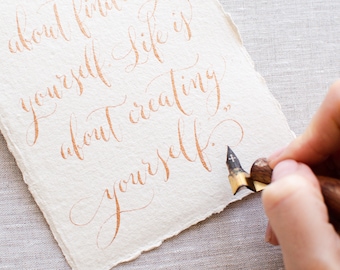 about findi
yourself. Life is
about creating
yourself."